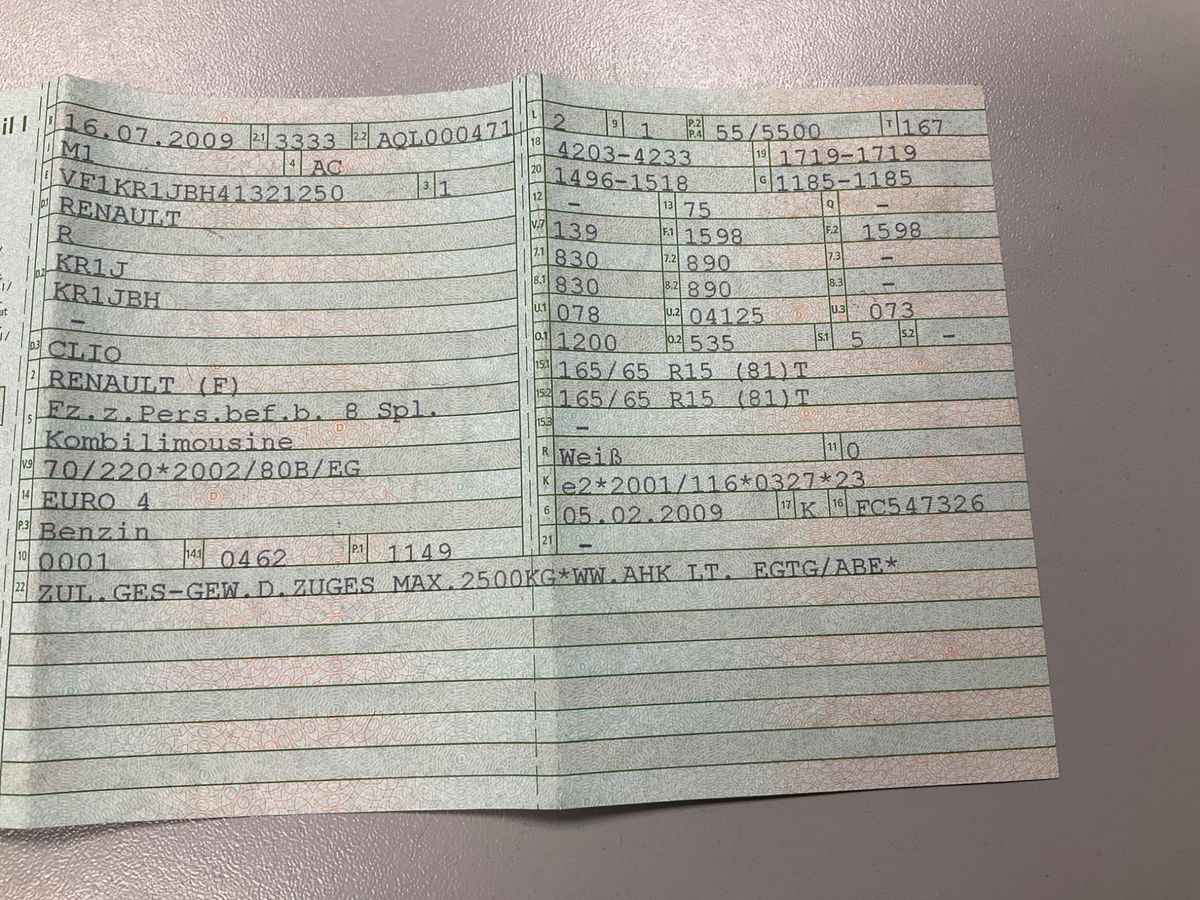 il I
B 16.07.2009 2.1 3333 2.2 AQL000471
J M1 4 AC
E VF1KR1JBH41321250 3 1
D.1 RENAULT
R
D.2 KR1J
KR1JBH
–
D.3 CLIO
2 RENAULT (F)
5 Fz.z.Pers.bef.b. 8 Spl.
Kombilimousine
V.9 70/220*2002/80B/EG
14 EURO 4
P.3 Benzin
10 0001 14.1 0462 P.1 1149
L 2 9 1 P.2 P.4 55/5500 T 167
18 4203-4233 19 1719-1719
20 1496-1518 G 1185-1185
12 – 13 75 Q –
V.7 139 F.1 1598 F.2 1598
7.1 830 7.2 890 7.3 –
8.1 830 8.2 890 8.3 –
U.1 078 U.2 04125 U.3 073
O.1 1200 O.2 535 S.1 5 S.2 –
15.1 165/65 R15 (81)T
15.2 165/65 R15 (81)T
15.3 –
R Weiß 11 0
K e2*2001/116*0327*23
6 05.02.2009 17 K 16 FC547326
21 –
22 ZUL.GES-GEW.D.ZUGES MAX.2500KG*WW.AHK LT. EGTG/ABE*